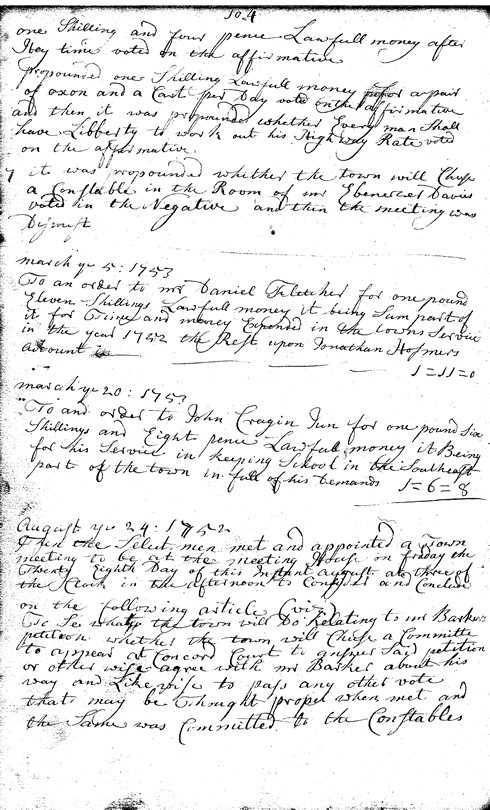 104
one Shilling and four pence Lawfull money after
Hay time voted on the affirmative
propounded one Shilling Lawfull money for a pair
of oxon and a Cart per Day vote on the affirmative
and then it was propounded whether Every man Shall
have Libberty to work out his High way Rate voted
on the affirmative
7 it was propounded whether the town will Chuse
a Constable in the Room of mr Ebenezer Davis
voted in the Negative and then the meeting was
Dismist
march ye 5: 1753
To an order to mr Daniel Fletcher for one pound
Eleven Shillings Lawfull money it being Sum part of
it for Time and money Expended in the towns Service
in the year 1752 the Rest upon Jonathan Hosmers
account
1=11=0
march ye 20: 1753
To and order to John Cragin Jun for one pound Six
Shillings and Eight pence Lawfull money it Being
for his Service in keeping School in the Southeast
part of the town in full of his Demands 1=6=8
August ye 24: 1752
Then the Select men met and appointed a Town
meeting to be at the meeting House on friday the
Twenty Eighth Day of this Instant august at three of
the Clock in the afternoon to Consider and Conclude
on the following article (viz)
To Se what the town will Do Relating to mr Barkers
petition whether the town will Chuse a Committe
to appear at Concord Court to answer Said petition
or other wise agree with mr Barker about his
way and Likewise to pass any other vote
that may be thought proper when met and
the Same was Committed to the Constables